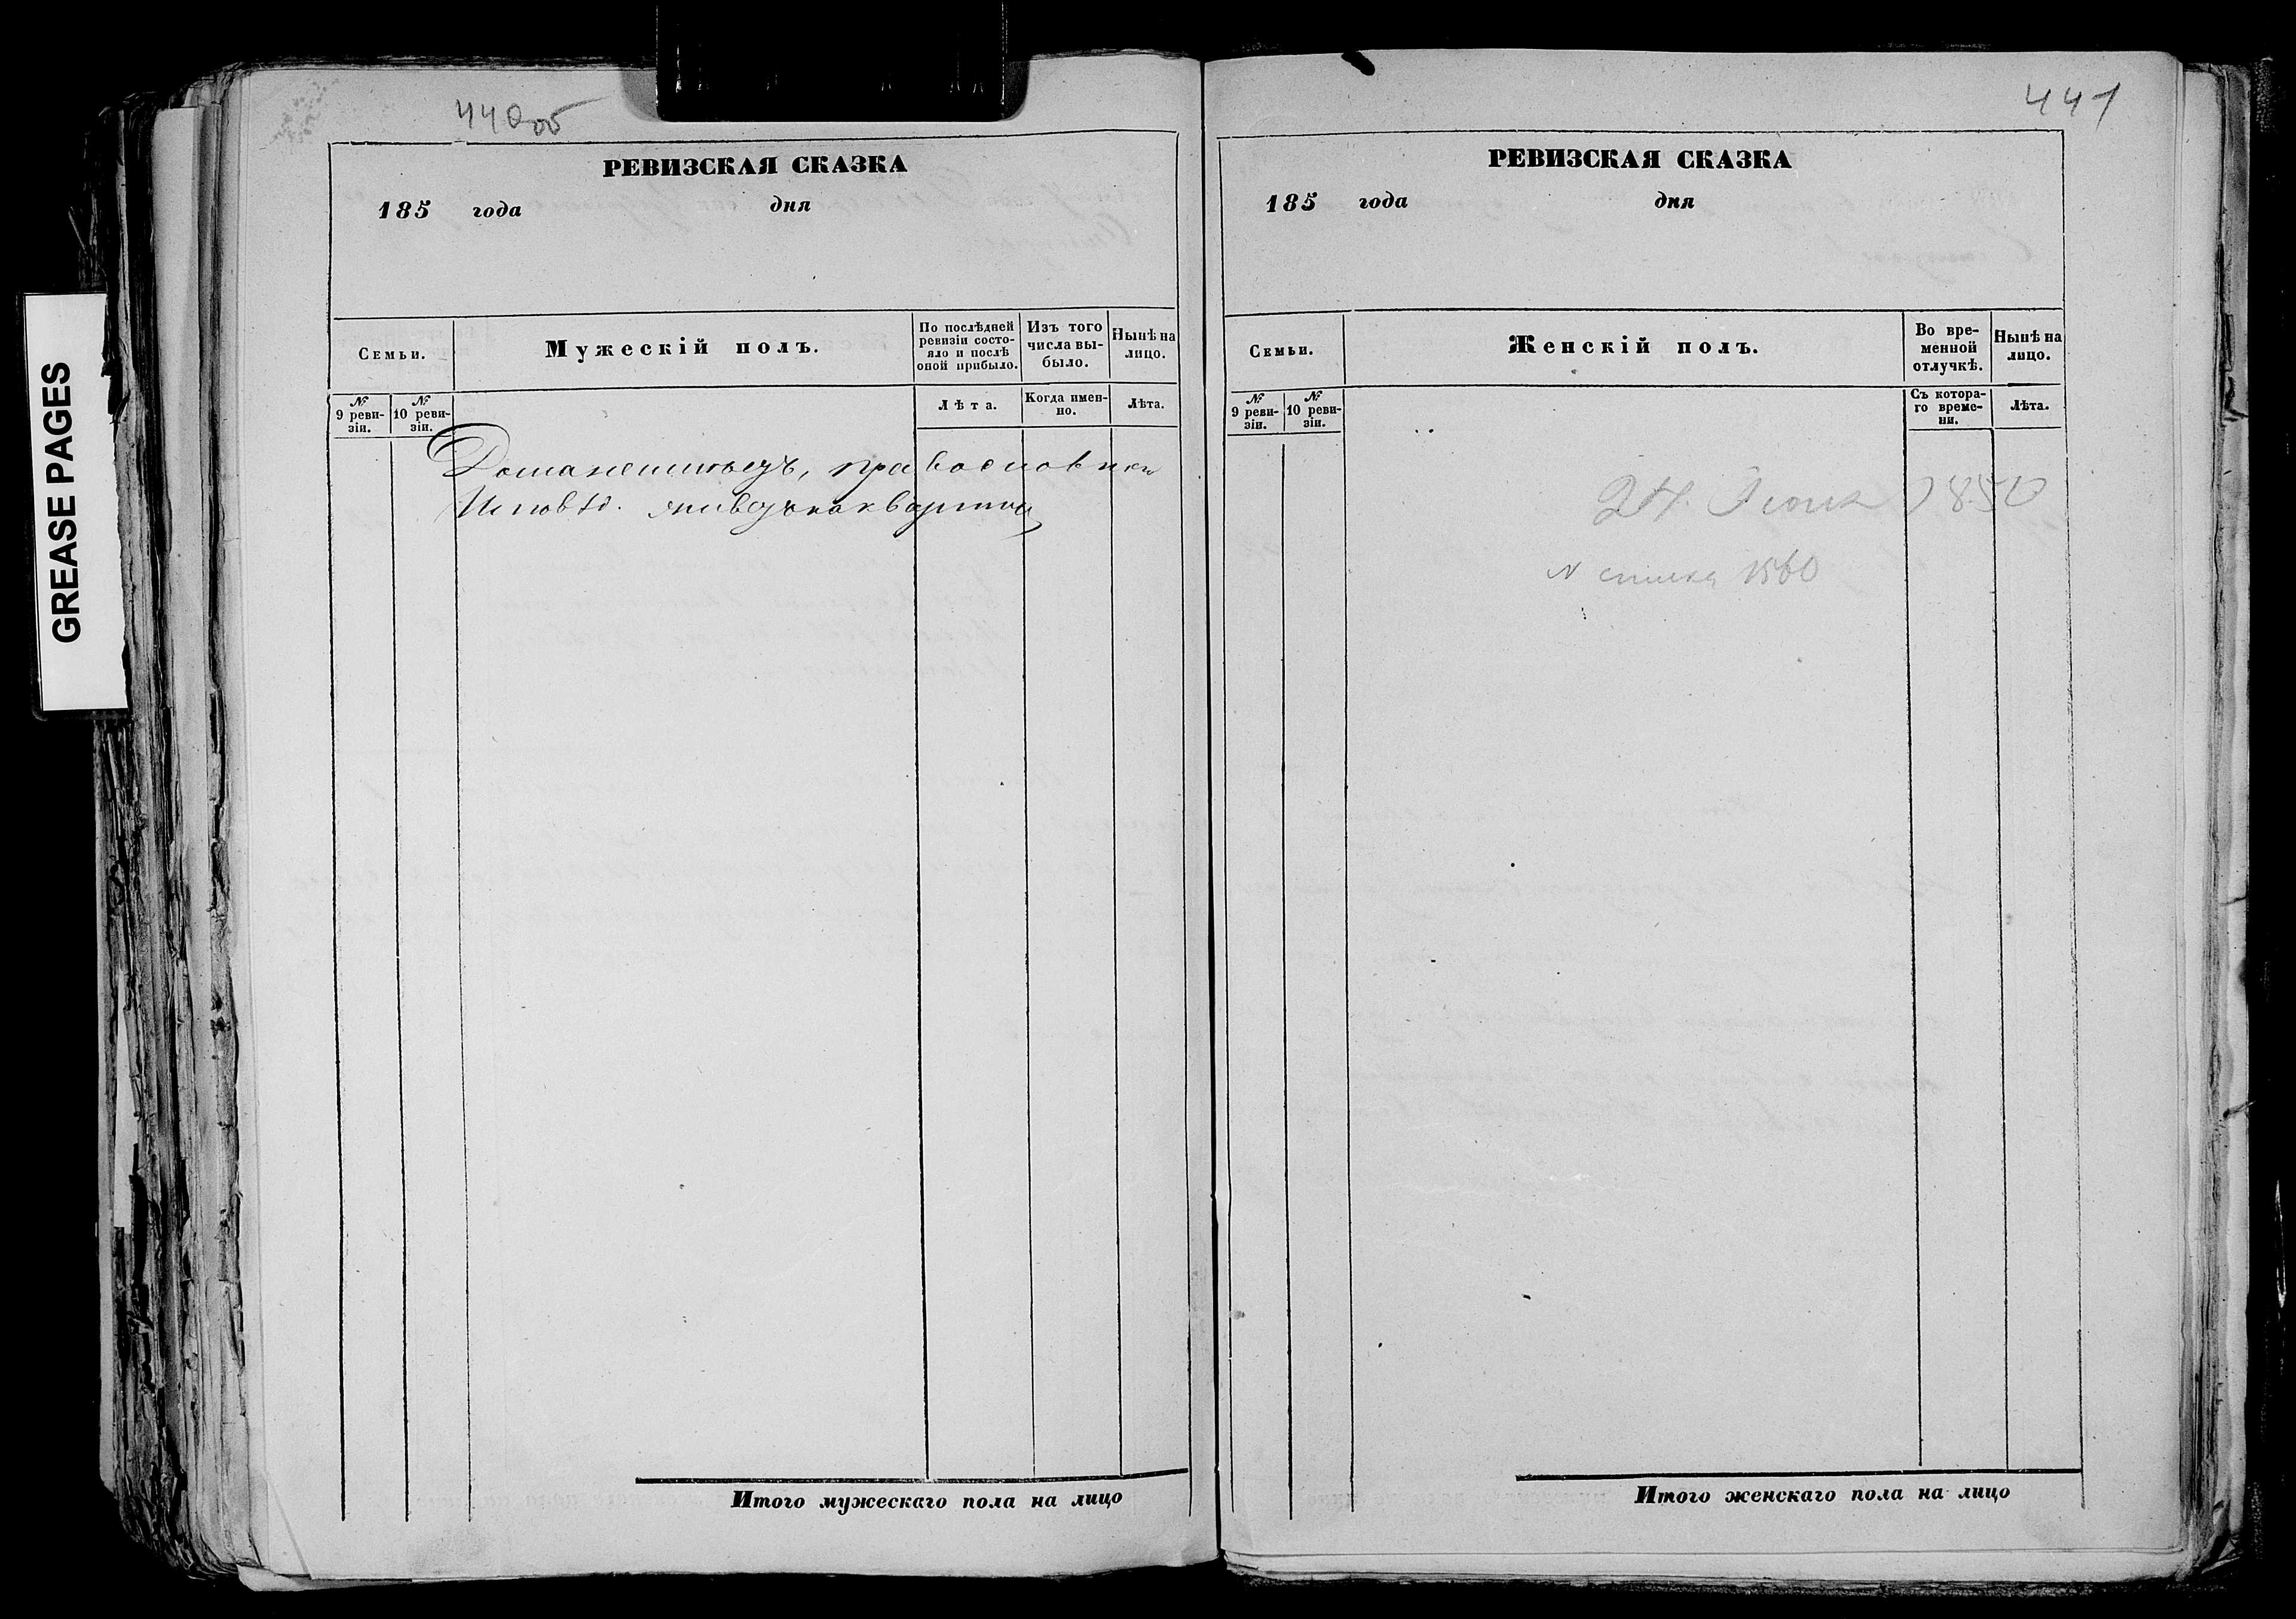 GREASE PAGES
440об
РЕВИЗСКАЯ СКАЗКА
185 года дня
Семьи.
Мужескій полъ.
По послѣдней ревизіи состояло и послѣ оной прибыло.
Изъ того числа выбыло.
Нынѣ на лицо.
№ 9 ревизіи.
№ 10 ревизіи.
Лѣта.
Когда именно.
Лѣта.
Исповѣд. живетъ на квартире
Итого мужескаго пола на лицо
441
РЕВИЗСКАЯ СКАЗКА
185 года дня
Семьи.
Женскій полъ.
Во временной отлучкѣ.
Нынѣ на лицо.
№ 9 ревизіи.
№ 10 ревизіи.
Съ котораго времени.
Лѣта.
24 Июня 1850
1560
Итого женскаго пола на лицо